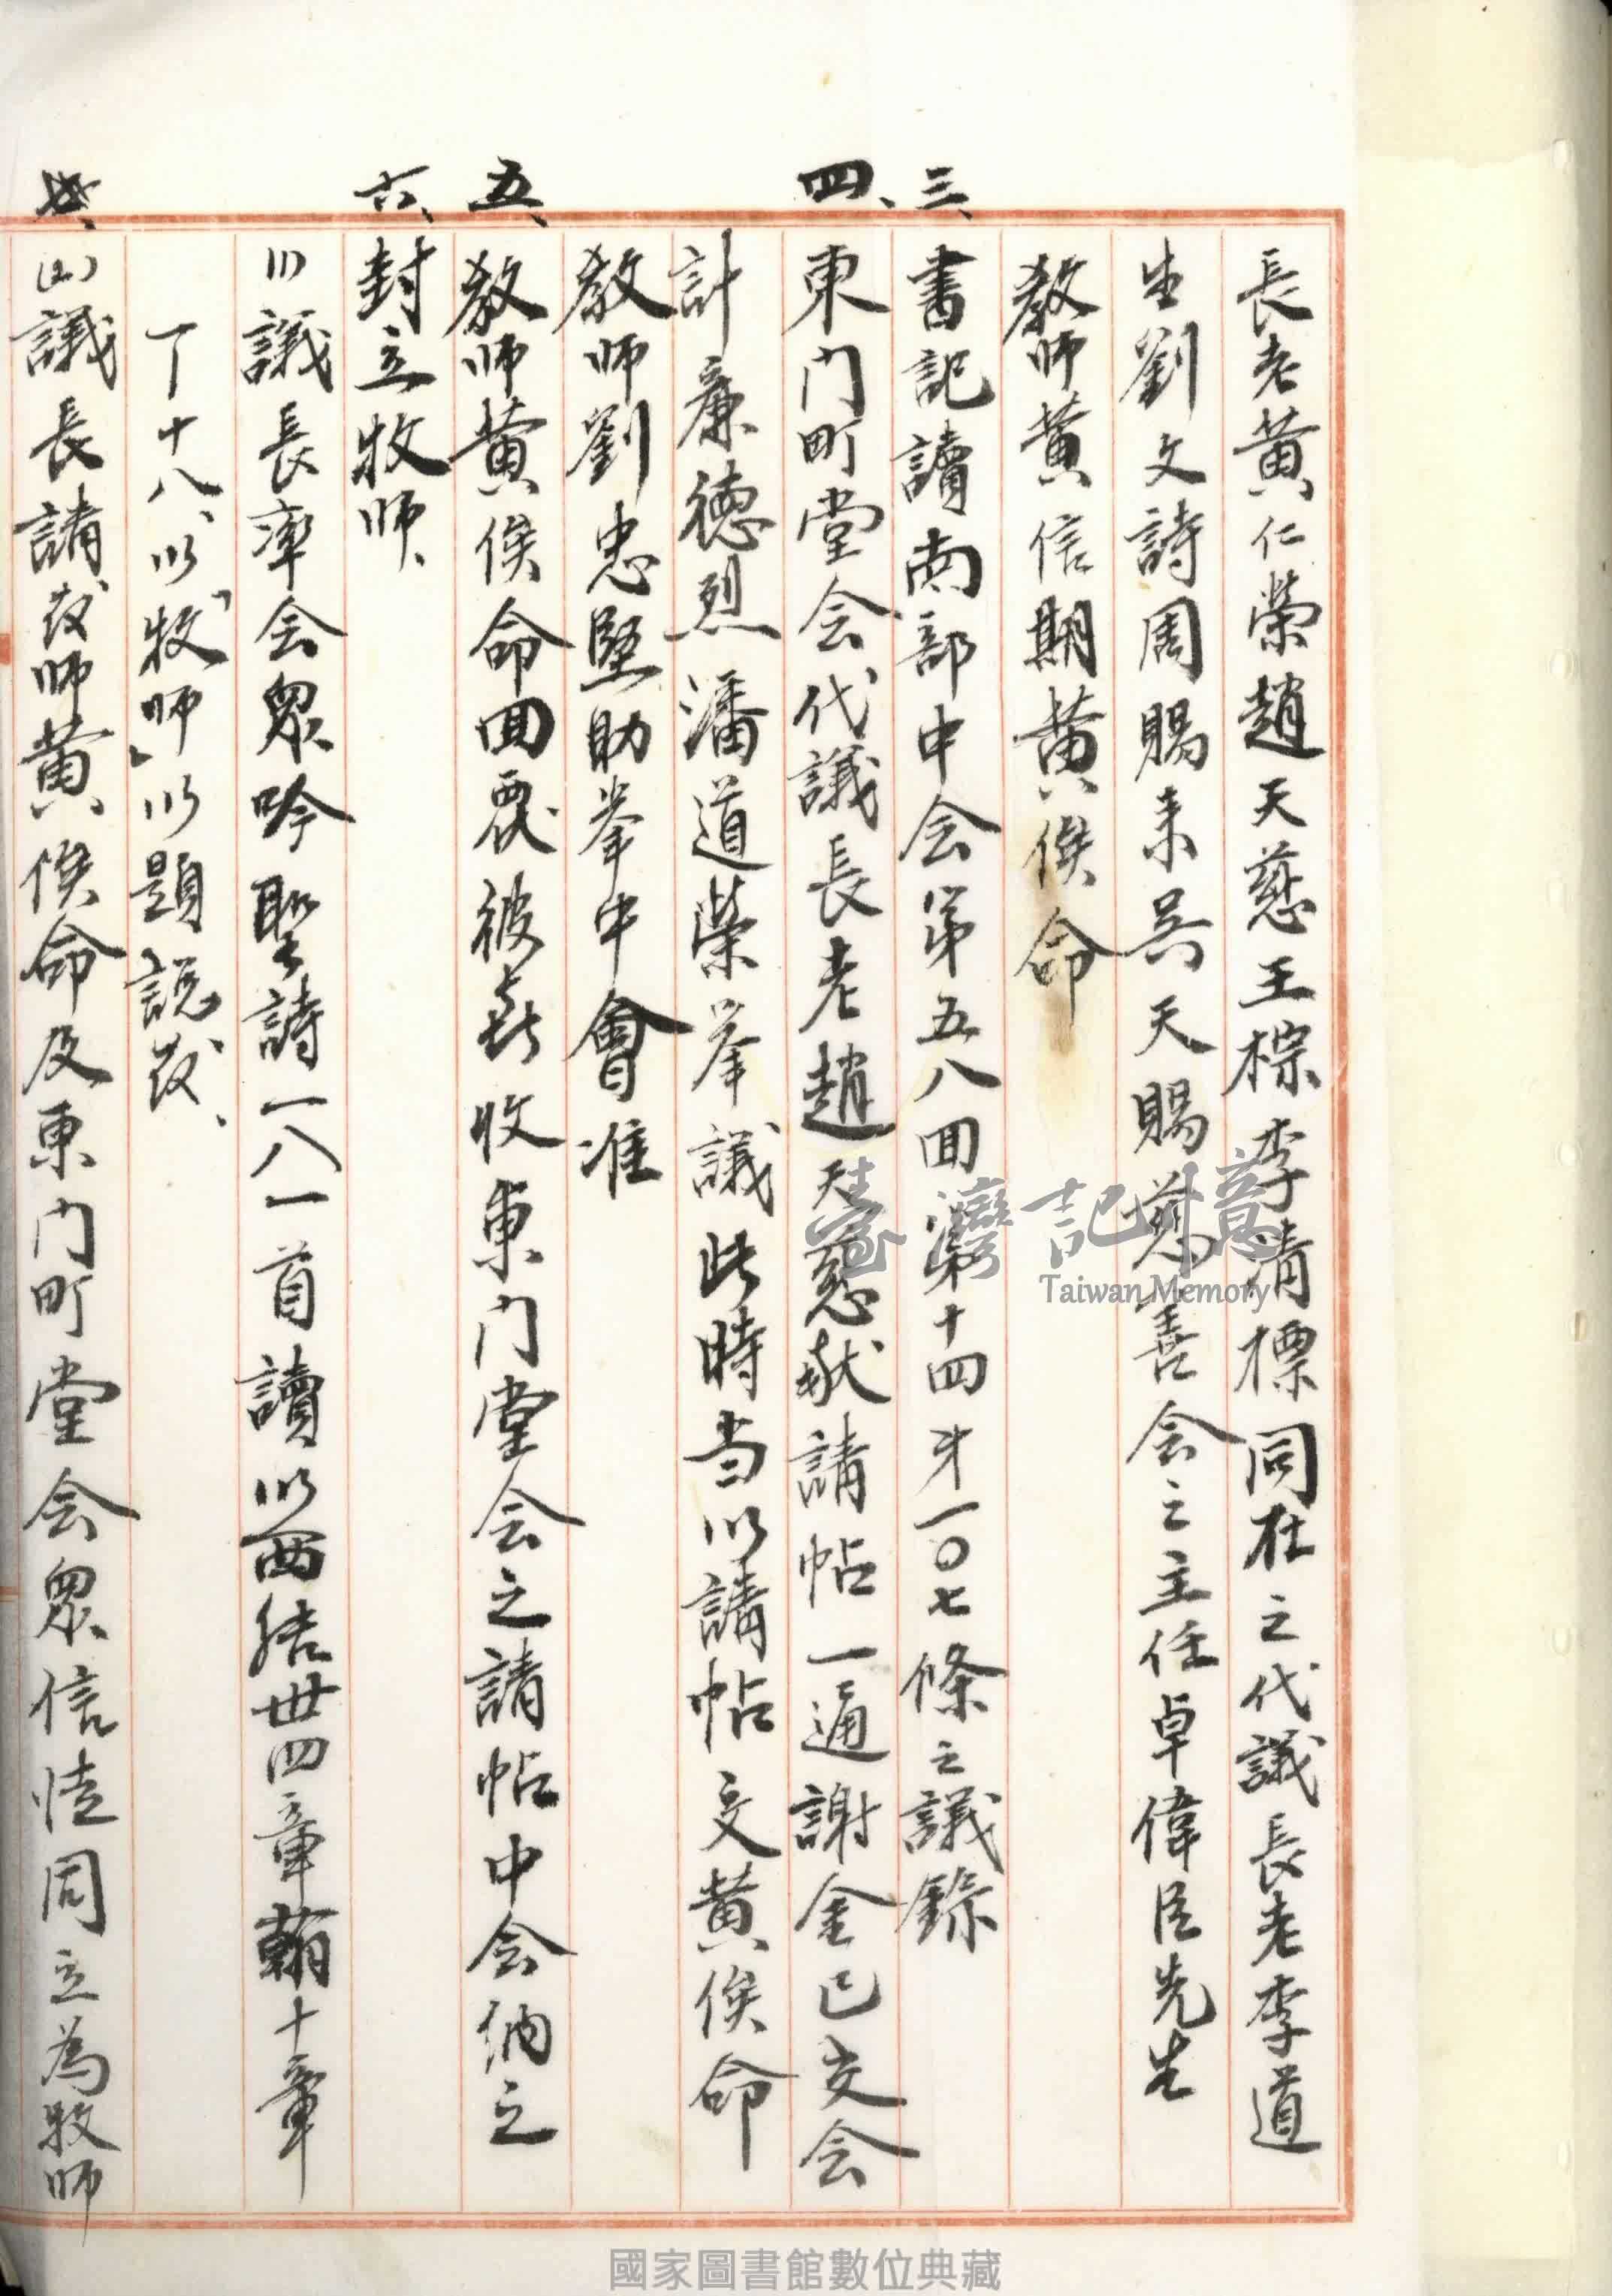 長老黃仁榮趙天慈王棕李清標同在之代議長老李道
生劉文詩周賜耒吳天賜慈善会之主任卓偉臣先生
教師黃信期黃俟命
三、書記讀南部中会第五八回第十四才一〇七條之議錄
四、東门町堂会代議長老趙天慈献請帖一通謝金已交会
計廉德烈潘道榮举議此時当以請帖交黃俟命
教師劉忠堅助举中會准
五、教師黃俟命回覆彼喜收東门堂会之請帖中会納之
六、封立牧師、
(1)議長率会眾吟聖詩一八一首讀以西結卅四章翰十章
一丁十八、以「牧師」以題說教、
七、(2)議長請教師黃俟命及東门町堂会眾信徒同立為牧師
臺灣記憶
Taiwan Memory
國家圖書館數位典藏